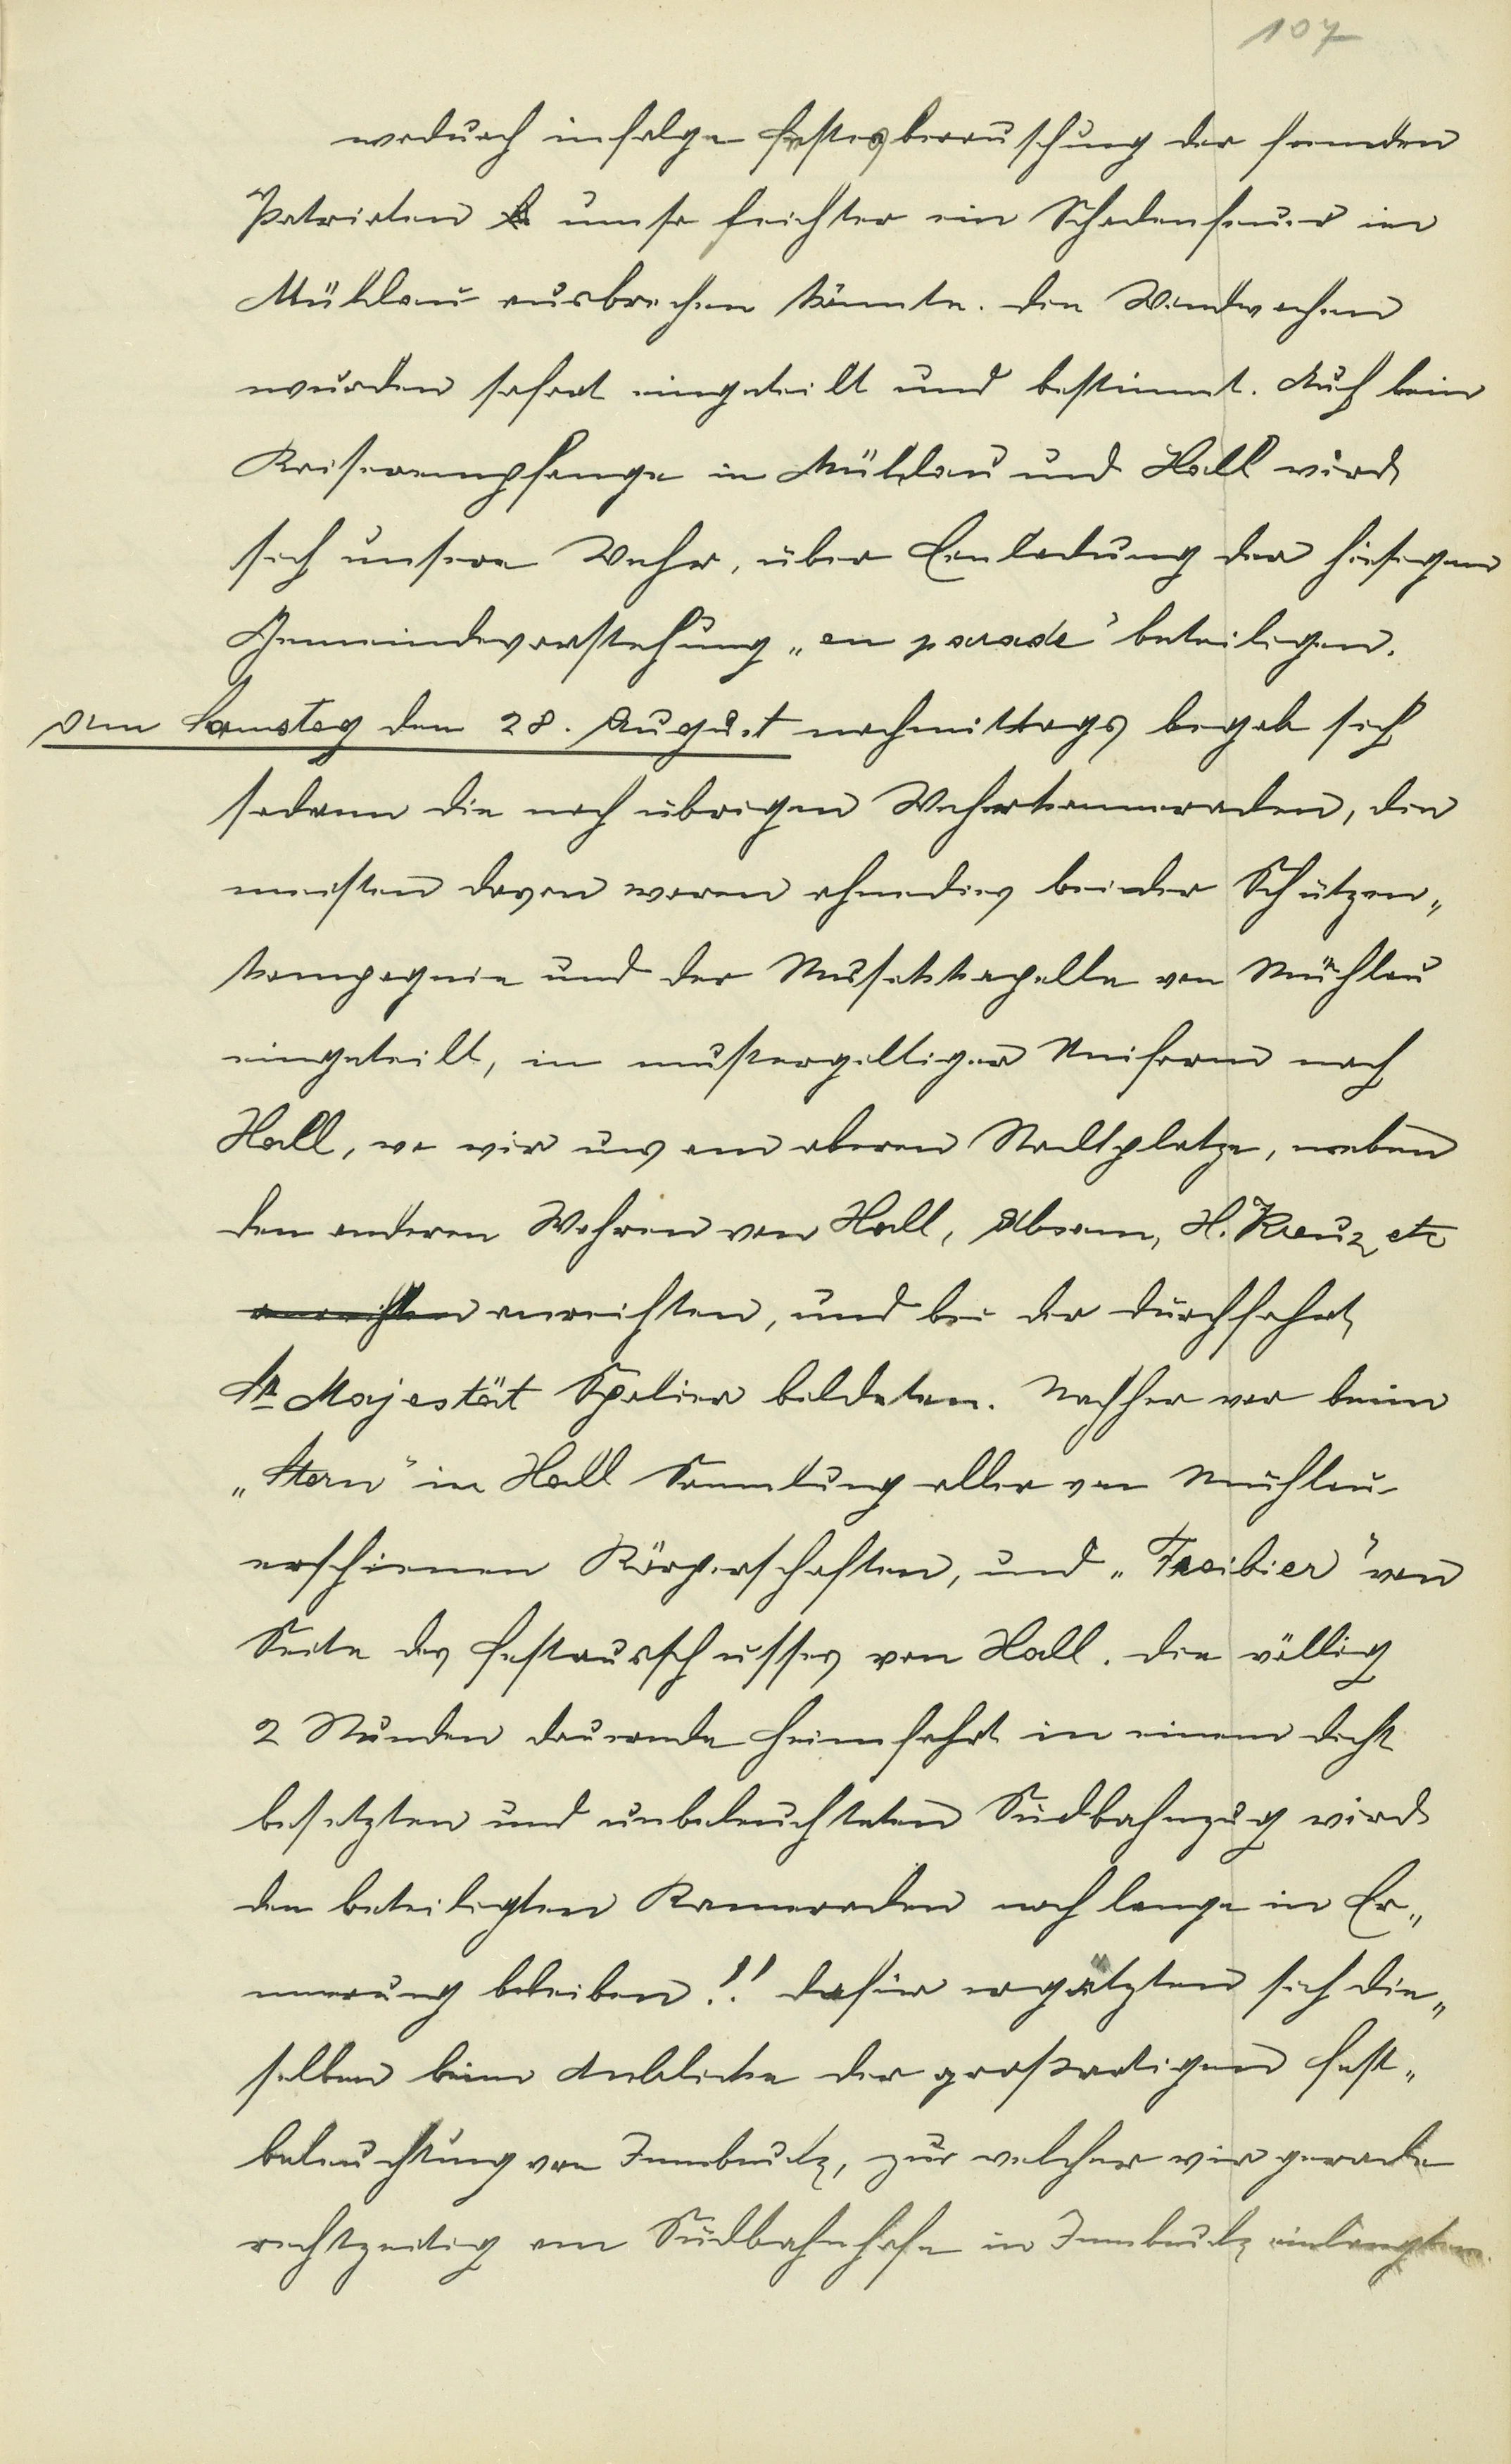 107
wodurch infolge Festesberauschung der fremden
Patrioten umso leichter ein Schadenfeuer in
Mühlau ausbrechen könnte. Die Wandwachen
wurden sofort eingeteilt und bestimmt. Auch beim
Kaiserempfange in Mühlau und Hall wird
sich unsere Wehr, über Einladung der hiesigen
Gemeindevorstehung „en parade" beteiligen.
Am Samstag den 28. August nachmittags begab sich
sodann die noch übrigen Wehrkammeraden, die
meisten davon waren ohnedies bei der Schützen„
kompagnie und der Musikkapelle von Mühlau
eingeteilt, in mustergiltiger Uniform nach
Hall, wo wir uns am oberen Stadtplatze, neben
den anderen Wehren von Hall, Absam, H. Kreuz etc
anreihten anreihten, und bei der Durchfahrt
Sr Majestät Spalier bildeten. Nachher war beim
„Stern" in Hall Sammlung aller von Mühlau
erschienen Körperschaften, und „Freibier" von
Seite des Festausschusses von Hall. Die völlig
2 Stunden dauernde Heimfahrt in einem dicht
besetzten und unbeleuchteten Südbahnzug wird
den beteiligten Kameraden noch lange in Er„
innerung bleiben!! Dafür ergötzten sich die„
selben beim Anblicke der großartigen Fest„
beleuchtung von Innsbruck, zur welcher wir gerade
rechtzeitig am Südbahnhofe in Innsbruck einlangten.